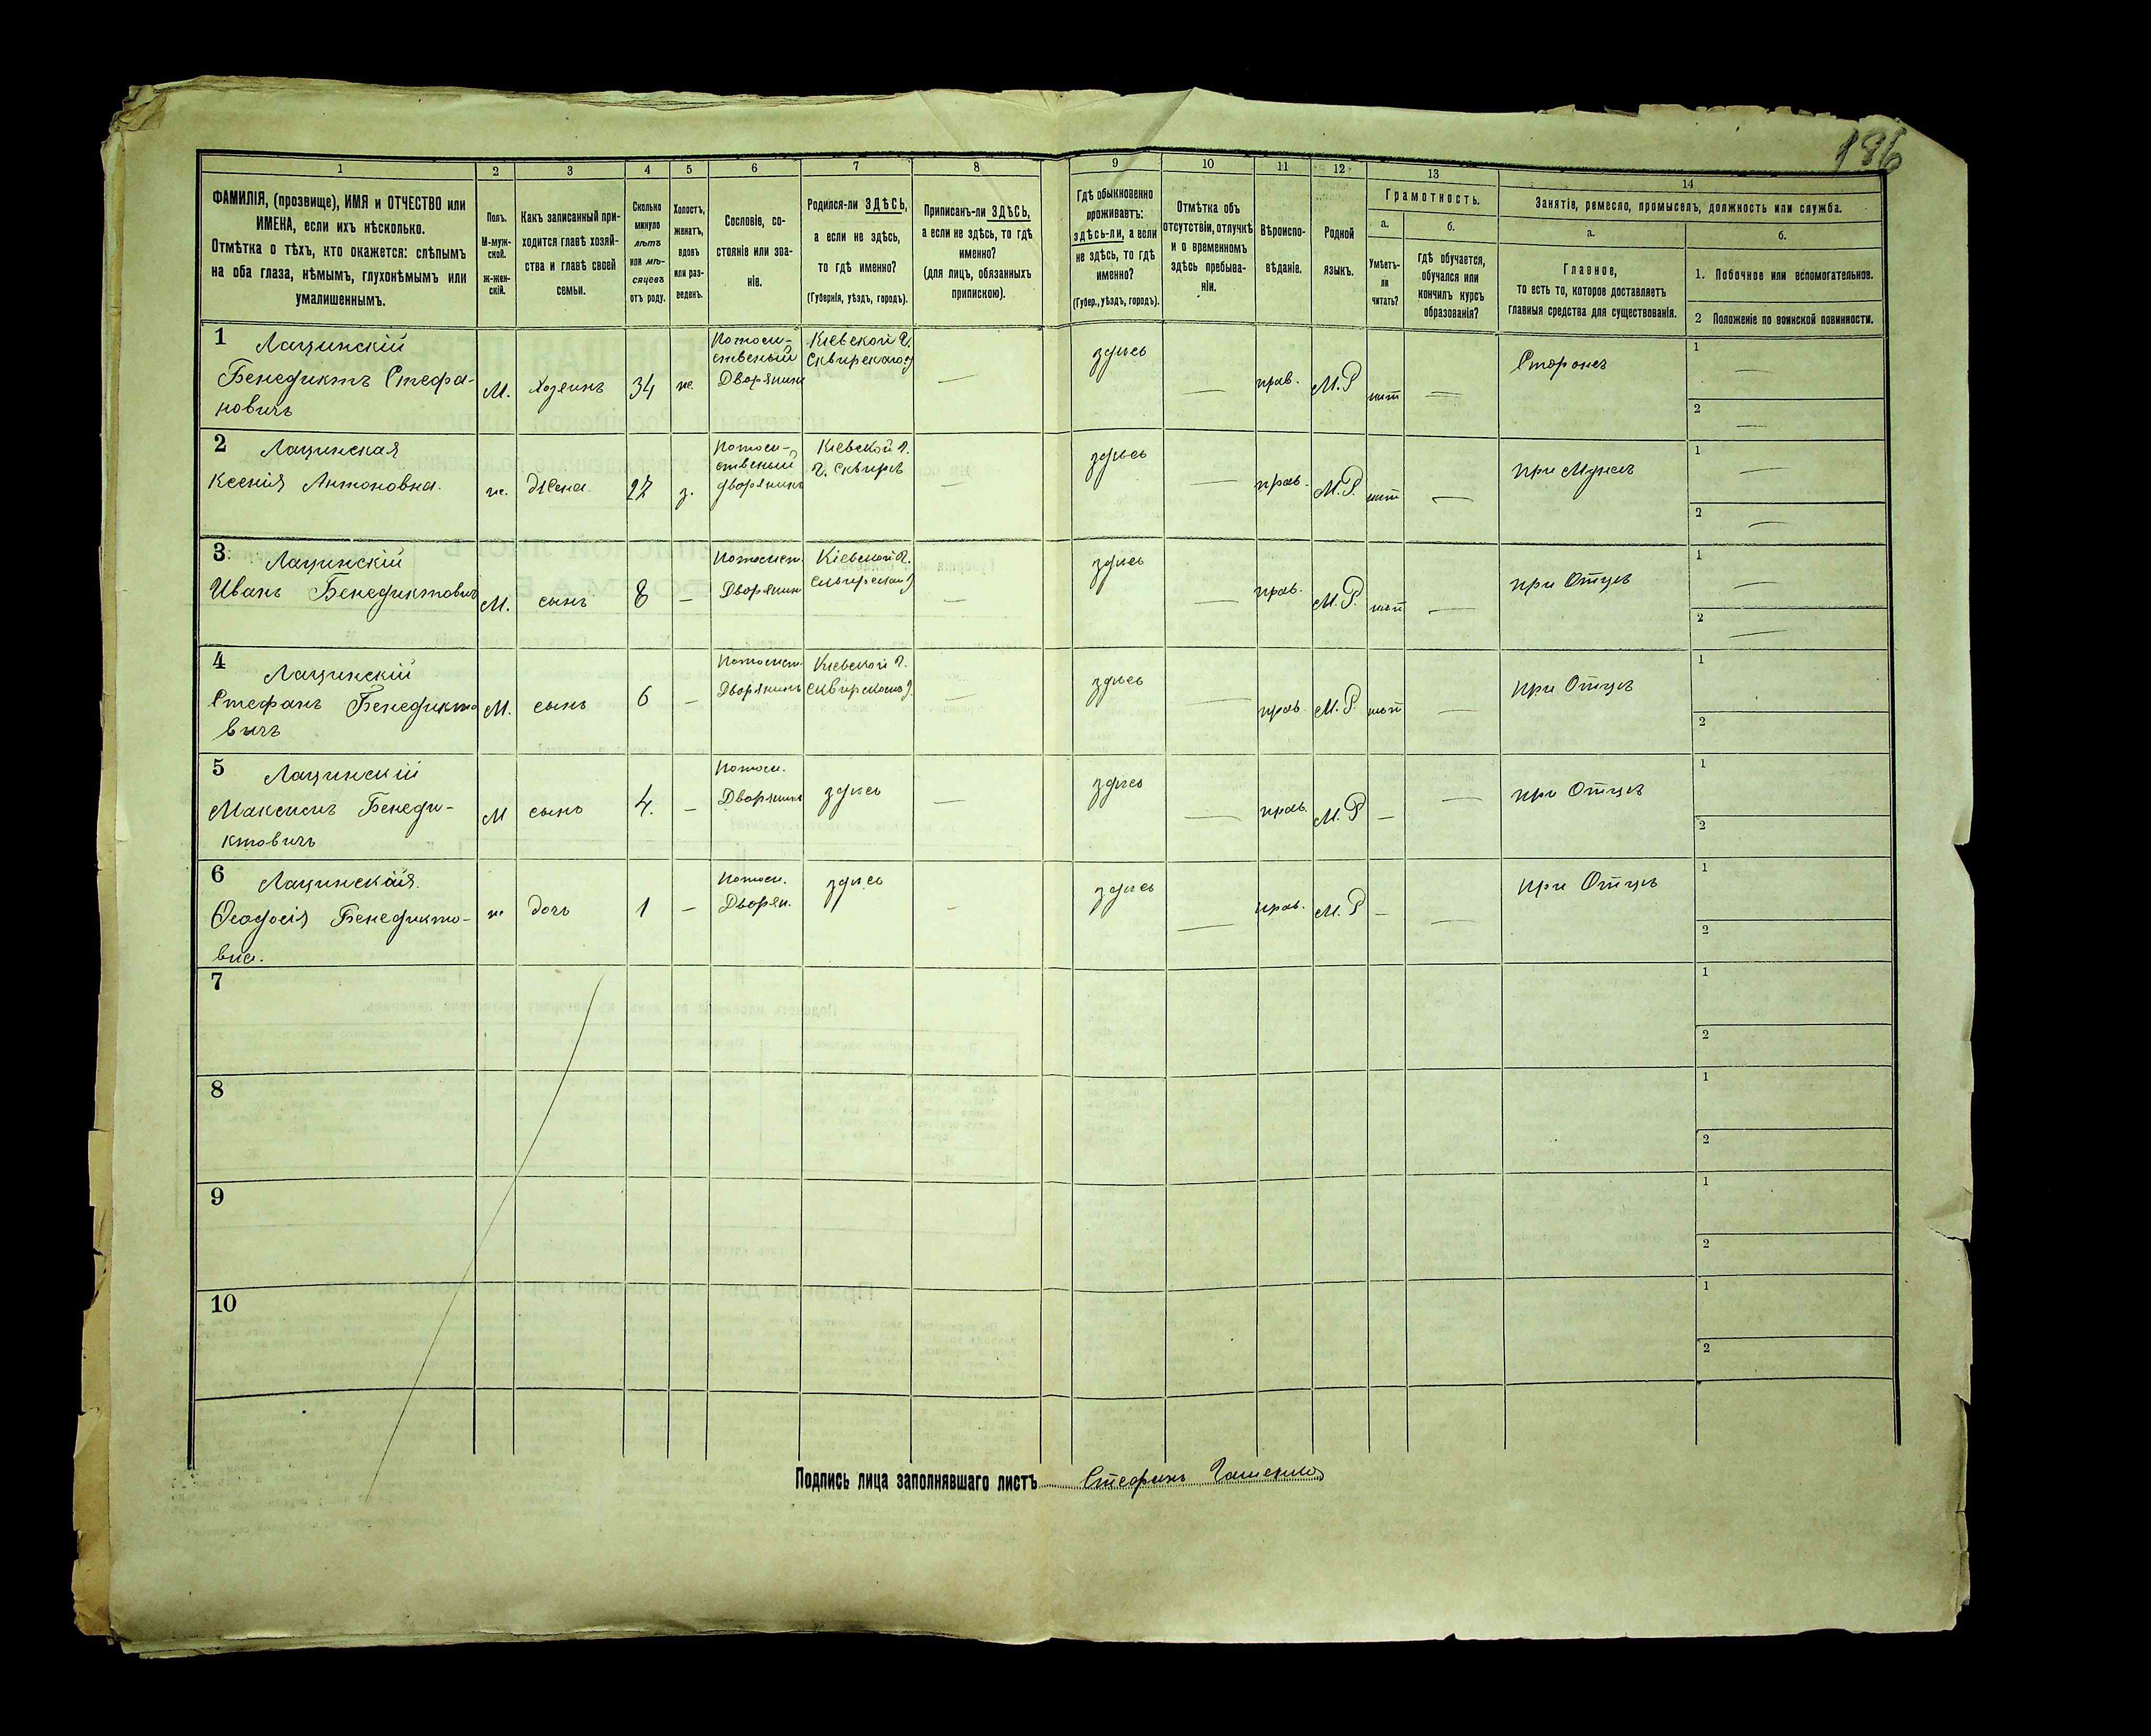 196
1 2 3 4 5 6 7 8 9 10 11 12 13 14
ФАМИЛІЯ, (прозвище), ИМЯ и ОТЧЕСТВО или
ИМЕНА, если ихъ нѣсколько.
Отмѣтка о тѣхъ, кто окажется: слѣпымъ
на оба глаза, нѣмымъ, глухонѣмымъ или
умалишеннымъ.
Полъ.
М-муж-
ской.
ж-жен-
скій.
Какъ записанный при-
ходится главѣ хозяй-
ства и главѣ своей
семьи.
Сколько
минуло
лѣтъ
или мѣ-
сяцевъ
отъ роду.
Холостъ,
женатъ,
вдовъ
или раз-
веденъ.
Сословіе, со-
стояніе или зва-
ніе.
Родился-ли ЗДѢСЬ,
а если не здѣсь,
то гдѣ именно?
(Губернія, уѣздъ, городъ).
Приписанъ-ли ЗДѢСЬ,
а если не здѣсь, то гдѣ
именно?
(для лицъ, обязанныхъ
припискою).
Гдѣ обыкновенно
проживаетъ:
здѣсь-ли, а если
не здѣсь, то гдѣ
именно?
(Губер., уѣздъ, городъ).
Отмѣтка объ
отсутствіи, отлучкѣ
и о временномъ
здѣсь пребыва-
ніи.
Вѣроиспо-
вѣданіе.
Родной
языкъ.
Грамотность.
а.
Умѣетъ-
ли
читать?
б.
гдѣ обучается,
обучался или
кончилъ курсъ
образованія?
Занятіе, ремесло, промыселъ, должность или служба.
а.
Главное,
то есть то, которое доставляетъ
главныя средства для существованія.
б.
1. Побочное или вспомогательное.
2 Положеніе по воинской повинности.
1 Лащинскій
Бенедиктъ Стефа-
новичъ
М. Хозяинъ 34 же.
Потом-
ственый
Дворянин
Кіевской Г.
Сквирскаго у
— здѣсь — прав. М.Р нѣт — Сторожъ
1 —
2 —
2 Лащинская
Ксенія Антоновна.
ж. Жена. 27 з.
Потом-
ственый
дворянинъ
Кіевской Г.
г. Сквиръ
— здѣсь — прав. М.Р. нѣт — при Мужѣ
1 —
2 —
3 Лащинскій
Иванъ Бенедиктович
М. сынъ 8 —
Потомст.
Дворянин
Кіевской Г.
Сквирскаго У
— здѣсь — прав. М.Р. нѣт — при Отцѣ
1 —
2 —
4 Лащинскій
Стефанъ Бенедикто
вичъ
М. сынъ 6 —
Потомст.
Дворянинъ
Кіевской Г.
Сквирскаго У.
— здѣсь — прав М.Р. нѣт — при Отцѣ
1
2
5 Лащинскій
Максимъ Бенеди-
ктовичъ
М сынъ 4. —
Потом.
Дворянинъ
здѣсь — здѣсь — прав. М.Р — — при Отцѣ
1
2
6 Лащинская.
Ѳеодосія Бенедикто-
вна.
ж дочь 1 —
Потом.
Дворян.
здѣсь — здѣсь — прав. М.Р — — при Отцѣ
1
2
7
1
2
8
1
2
9
1
2
10
1
2
Подпись лица заполнявшаго листъ Стефанъ